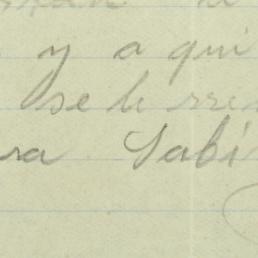 y aqui
se le
ra Sabi